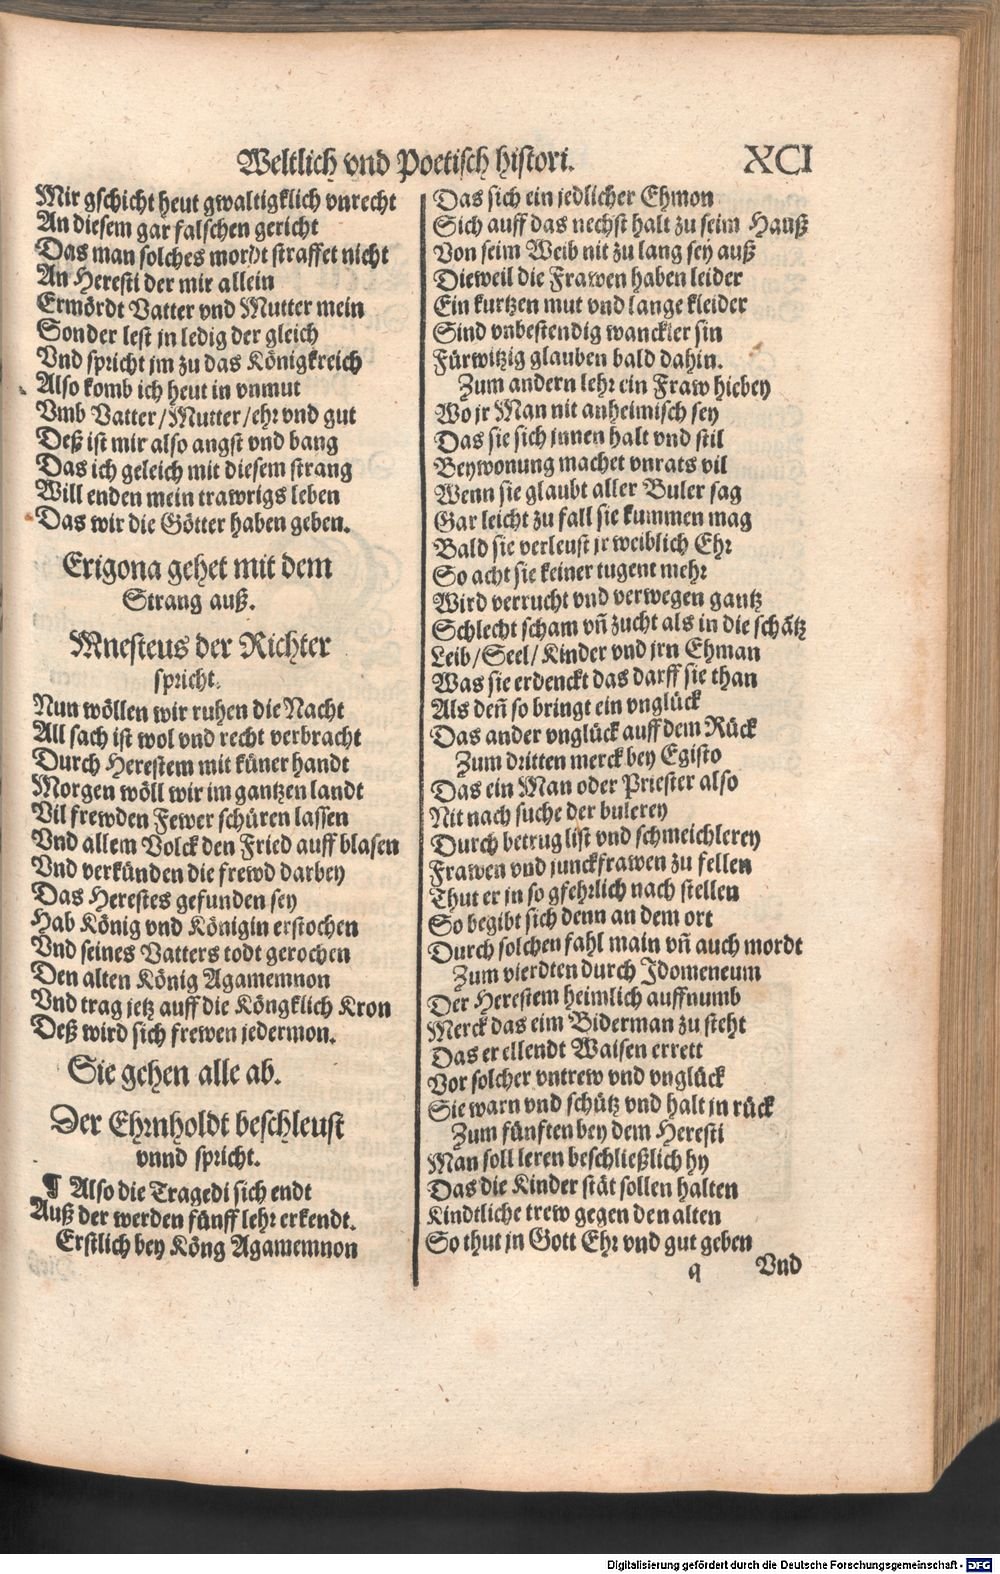 Weltlich vnd Poetisch histori. XCI
Mir gschicht heut gwaltigklich vnrecht
An diesem gar falschen gericht
Das man solches mordt straffet nicht
An Heresti der mir allein
Ermördt Vatter vnd Mutter mein
Sonder lest jn ledig der gleich
Vnd spricht jm zu das Königkreich
Also komb ich heut in vnmut
Vmb Vatter/Mutter/ehr vnd gut
Deß ist mir also angst vnd bang
Das ich geleich mit diesem strang
Will enden mein trawrigs leben
Das wir die Götter haben geben.
Erigona gehet mit dem
Strang auß.
Mnesteus der Richter
spricht.
Nun wöllen wir ruhen die Nacht
All sach ist wol vnd recht verbracht
Durch Herestem mit küner handt
Morgen wöll wir im gantzen landt
Vil frewden Fewer schüren lassen
Vnd allem Volck den Fried auff blasen
Vnd verkünden die frewd darbey
Das Herestes gefunden sey
Hab König vnd Königin erstochen
Vnd seines Vatters todt gerochen
Den alten König Agamemnon
Vnd trag jetz auff die Köngklich Kron
Deß wird sich frewen jedermon.
Sie gehen alle ab.
Der Ehrnholdt beschleust
vnnd spricht.
¶ Also die Tragedi sich endt
Auß der werden fünff lehr erkendt.
Erstlich bey Köng Agamemnon
Das sich ein jedlicher Ehmon
Sich auff das nechst halt zu seim Hauß
Von seim Weib nit zu lang sey auß
Dieweil die Frawen haben leider
Ein kurtzen mut vnd lange kleider
Sind vnbestendig wanckler sin
Fürwitzig glauben bald dahin.
Zum andern lehr ein Fraw hiebey
Wo jr Man nit anheimisch sey
Das sie sich jnnen halt vnd stil
Beywonung machet vnrats vil
Wenn sie glaubt aller Buler sag
Gar leicht zu fall sie kummen mag
Bald sie verleust jr weiblich Ehr
So acht sie keiner tugent mehr
Wird verrucht vnd verwegen gantz
Schlecht scham vn̄ zucht als in die schātz
Leib/Seel/Kinder vnd jrn Ehman
Was sie erdenckt das darff sie than
Als den̄ so bringt ein vnglück
Das ander vnglück auff dem Rück
Zum dritten merck bey Egisto
Das ein Man oder Priester also
Nit nach suche der bulerey
Durch betrug list vnd schmeichlerey
Frawen vnd junckfrawen zu fellen
Thut er jn so gfehrlich nach stellen
So begibt sich denn an dem ort
Durch solchen fahl main vn̄ auch mordt
Zum vierdten durch Idomeneum
Der Herestem heimlich auffnumb
Merck das eim Biderman zu steht
Das er ellendt Waisen errett
Vor solcher vntrew vnd vnglück
Sie warn vnd schütz vnd halt jn rück
Zum fünften bey dem Heresti
Man soll leren beschließlich hy
Das die Kinder stät sollen halten
Kindtliche trew gegen den alten
So thut jn Gott Ehr vnd gut geben
q Vnd
Digitalisierung gefördert durch die Deutsche Forschungsgemeinschaft - DFG